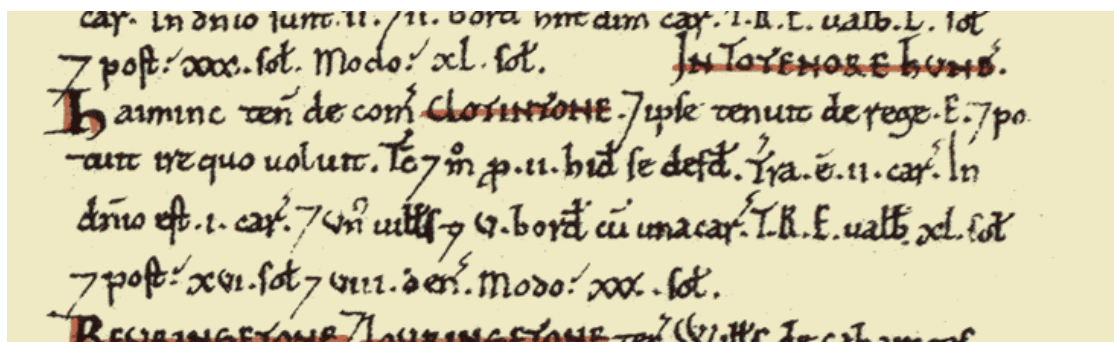 car. In dnio sunt. ii. ⁊ ii. bord hnt dim car. T.R.E. ualb. L. sol
⁊ post: xxx. sol. Modo: xl. sol. IN TOTENORE HVND.
Haiminc ten de com CLOTINTONE. ⁊ ipse tenuit de rege. E. ⁊ po
tuit ire quo uoluit. Tc ⁊ m p. ii. hid se defd. Tra. e. ii. car. In
dnio est. i. car. ⁊ un uills ⁊ v. bord cu una car. T.R.E. ualb. xl. sol
⁊ post: xvi. sol ⁊ viii. den. Modo: xxx. sol.
REVRINGETONE ⁊ LOVRINGETONE ten Wills de cahainges